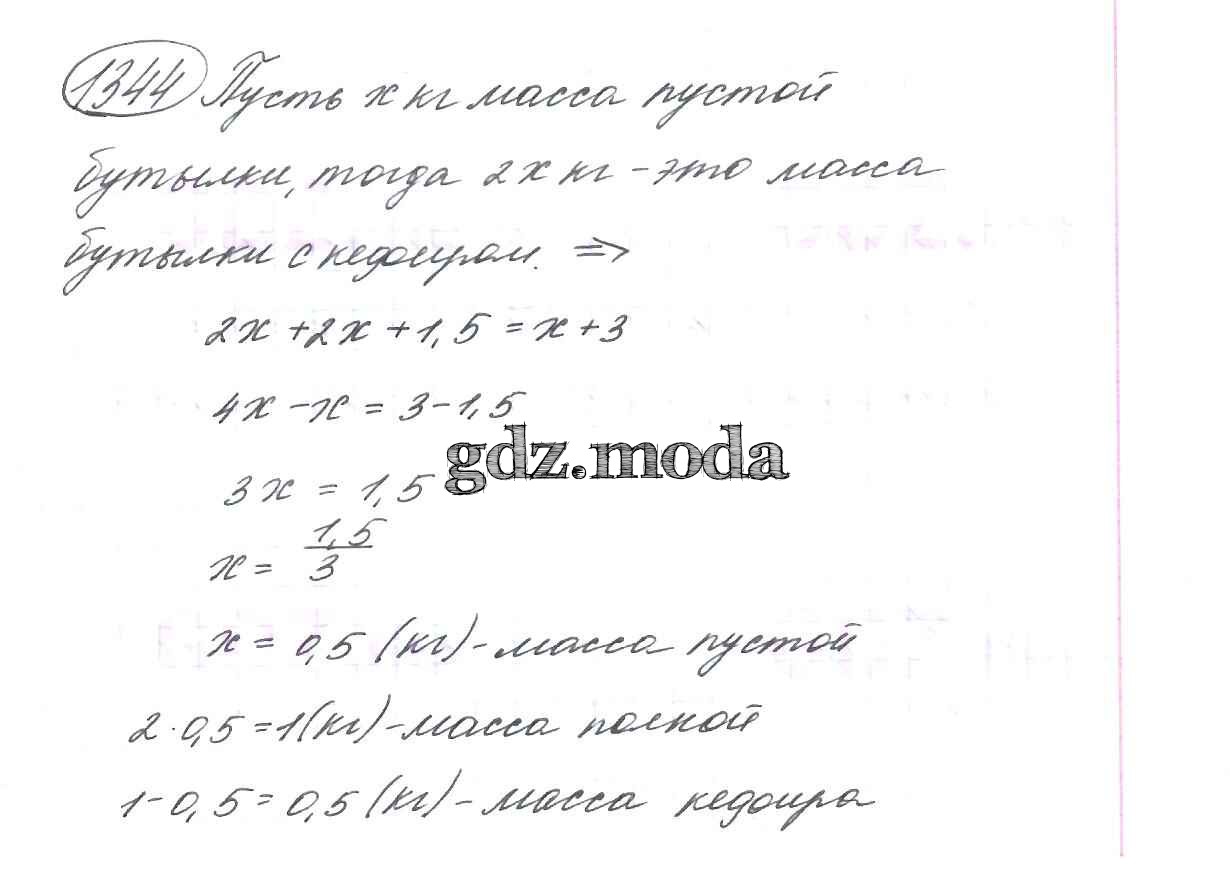 1344 Пусть x кг масса пустой
бутылки, тогда 2x кг – это масса
бутылки с кефиром. =>
2x + 2x + 1,5 = x + 3
4x – x = 3 – 1,5
gdz.moda
3x = 1,5
x = 1,5/3
x = 0,5 (кг) – масса пустой
2 · 0,5 = 1 (кг) – масса полной
1 – 0,5 = 0,5 (кг) – масса кефира